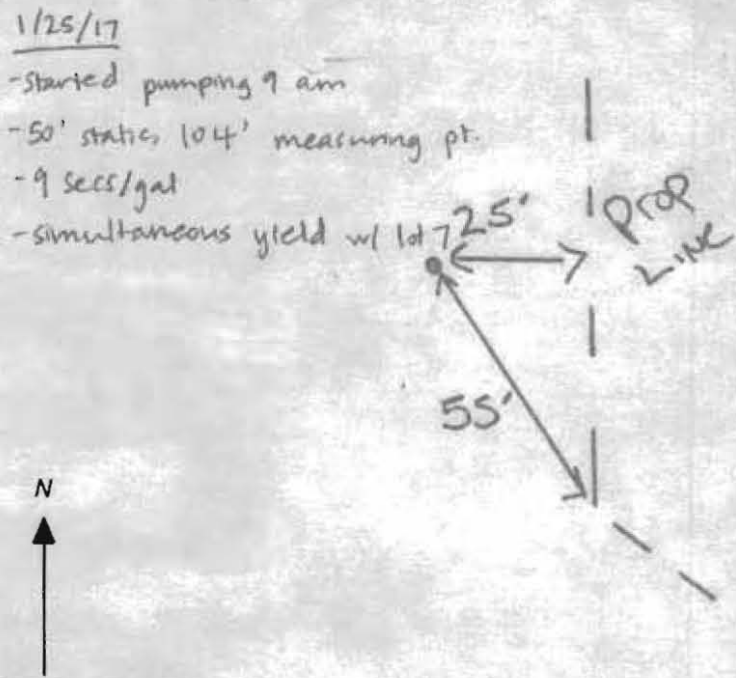 1/25/17
-Started pumping 9 am
-50' static, 104' measuring pt.
-9 secs/gal
-simultaneous yield w/ lot 7
25'
PROP
LINE
55'
N